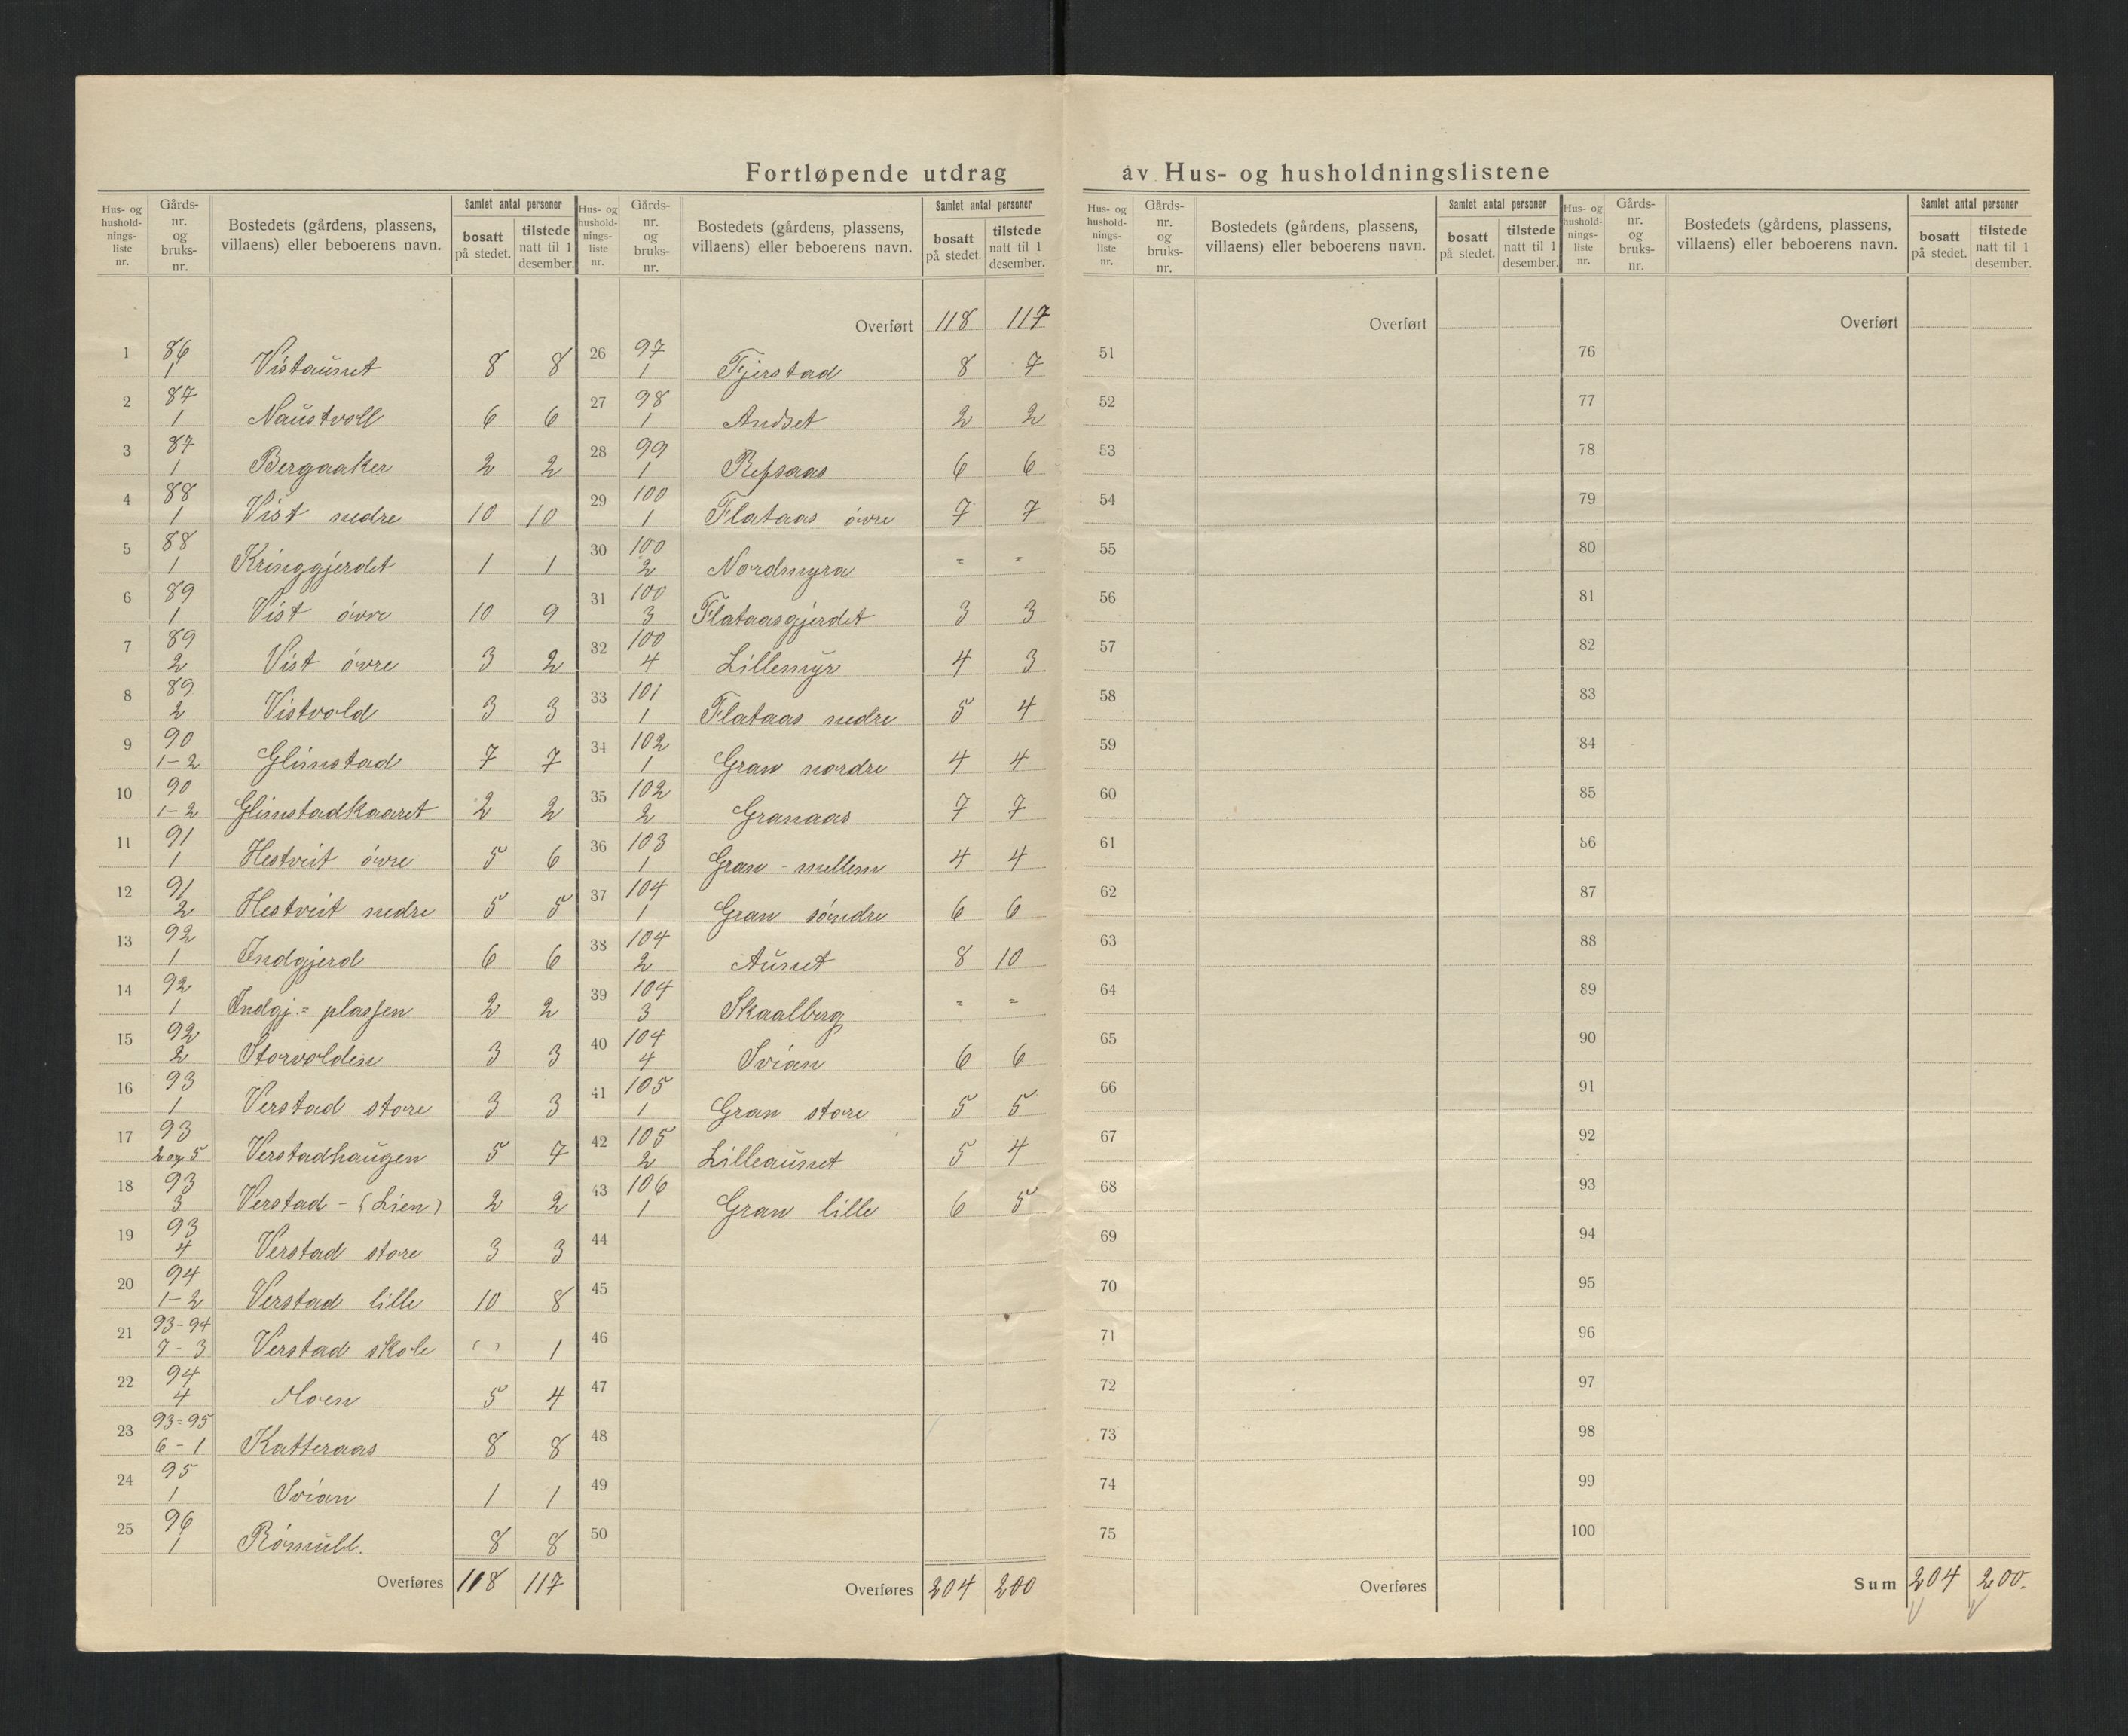 Fortløpende utdrag av Hus- og husholdningslistene
Hus- og husholdnings-liste nr. Gårds-nr. og bruks-nr. Bostedets (gårdens, plassens, villaens) eller beboerens navn. Samlet antal personer bosatt på stedet. tilstede natt til 1 desember.
1 86 1 Vistaunet 8 8
2 87 1 Naustvoll 6 6
3 87 1 Bergaaker 2 2
4 88 1 Vist nedre 10 10
5 88 1 Kringgjerdet 1 1
6 89 1 Vist øvre 10 9
7 89 2 Vist øvre 3 2
8 89 2 Vistvold 3 3
9 90 1-2 Glimstad 7 7
10 90 1-2 Glimstadkaaret 2 2
11 91 1 Hestveit øvre 5 6
12 91 2 Hestveit nedre 5 5
13 92 1 Indgjerd 6 6
14 92 1 Indgj.= plassen 2 2
15 92 2 Storvolden 3 3
16 93 1 Verstad store 3 3
17 93 2 og 5 Verstadhaugen 5 7
18 93 3 Verstad - (Lien) 2 2
19 93 4 Verstad store 3 3
20 94 1-2 Verstad lille 10 8
21 93-94 7-3 Verstad skole " 1
22 94 4 Moen 5 4
23 93=95 6-1 Katteraas 8 8
24 95 1 Svian 1 1
25 96 1 Rømuld. 8 8
Overføres 118 117
Hus- og husholdnings-liste nr. Gårds-nr. og bruks-nr. Bostedets (gårdens, plassens, villaens) eller beboerens navn. Samlet antal personer bosatt på stedet. tilstede natt til 1 desember.
Overført 118 117
26 97 1 Fjerstad 8 7
27 98 1 Andset 2 2
28 99 1 Refsaas 6 6
29 100 1 Flataas øvre 7 7
30 100 2 Nordmyra = =
31 100 3 Flataasgjerdet 3 3
32 100 4 Lillemyr 4 3
33 101 1 Flataas nedre 5 4
34 102 1 Gran nordre 4 4
35 102 2 Granaas 7 7
36 103 1 Gran - mellem 4 4
37 104 1 Gran søndre 6 6
38 104 2 Aunet 8 10
39 104 3 Skaalberg = =
40 104 4 Svian 6 6
41 105 1 Gran store 5 5
42 105 2 Lilleaunet 5 4
43 106 1 Gran lille 6 5
44
45
46
47
48
49
50
Overføres 204 200
Hus- og husholdnings-liste nr. Gårds-nr. og bruks-nr. Bostedets (gårdens, plassens, villaens) eller beboerens navn. Samlet antal personer bosatt på stedet. tilstede natt til 1 desember.
Overført
51
52
53
54
55
56
57
58
59
60
61
62
63
64
65
66
67
68
69
70
71
72
73
74
75
Overføres
Hus- og husholdnings-liste nr. Gårds-nr. og bruks-nr. Bostedets (gårdens, plassens, villaens) eller beboerens navn. Samlet antal personer bosatt på stedet. tilstede natt til 1 desember.
Overført
76
77
78
79
80
81
82
83
84
85
86
87
88
89
90
91
92
93
94
95
96
97
98
99
100
Sum 204 200.